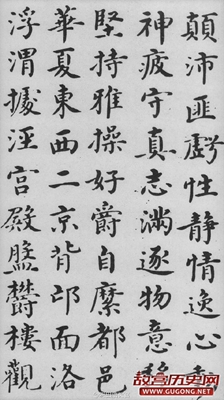 顛沛匪虧性靜情逸心動
神疲守真志滿逐物意移
堅持雅操好爵自縻都邑
華夏東西二京背邙面洛
浮渭據涇宮殿盤欝樓觀
故宫历史网
GUGONG.NET